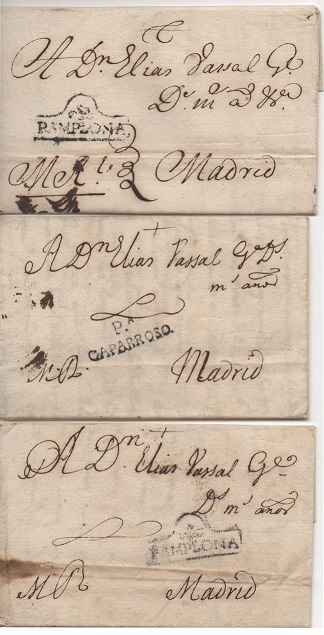 A Dn. Elias Vassal Ge.
De. ms. as
PAMPLONA
Madrid
A Dn Elias Vassal Ge. Ds.
ms. años
P.A
CAPARROSO.
M. R. Madrid
A Dn. Elias Vassal Geo.
Ds. ms. años
PAMPLONA
M R Madrid